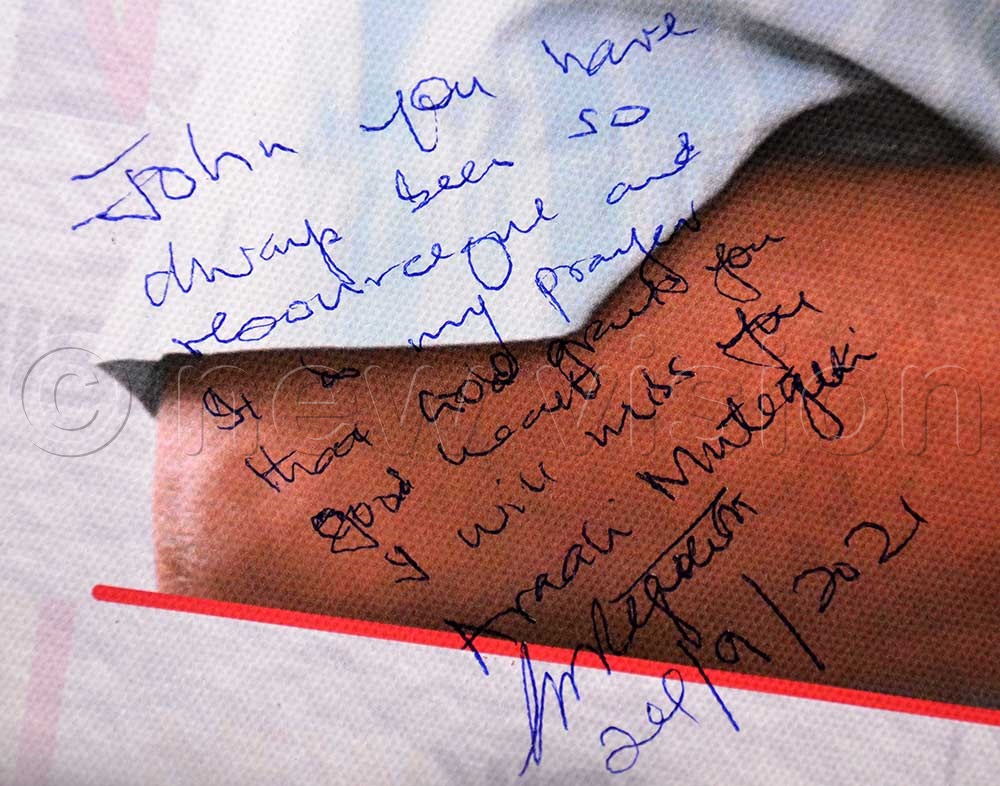 John you have
always been so
resourceque and
It is my prayer
that God grants you
good health
I will miss you
Araali Mutegeki
/09/2021
© new vision